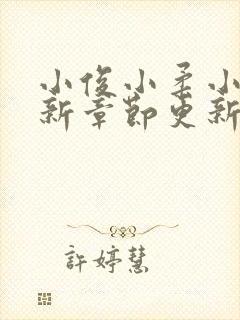 小俊小柔小
新章節更新
許婷慧